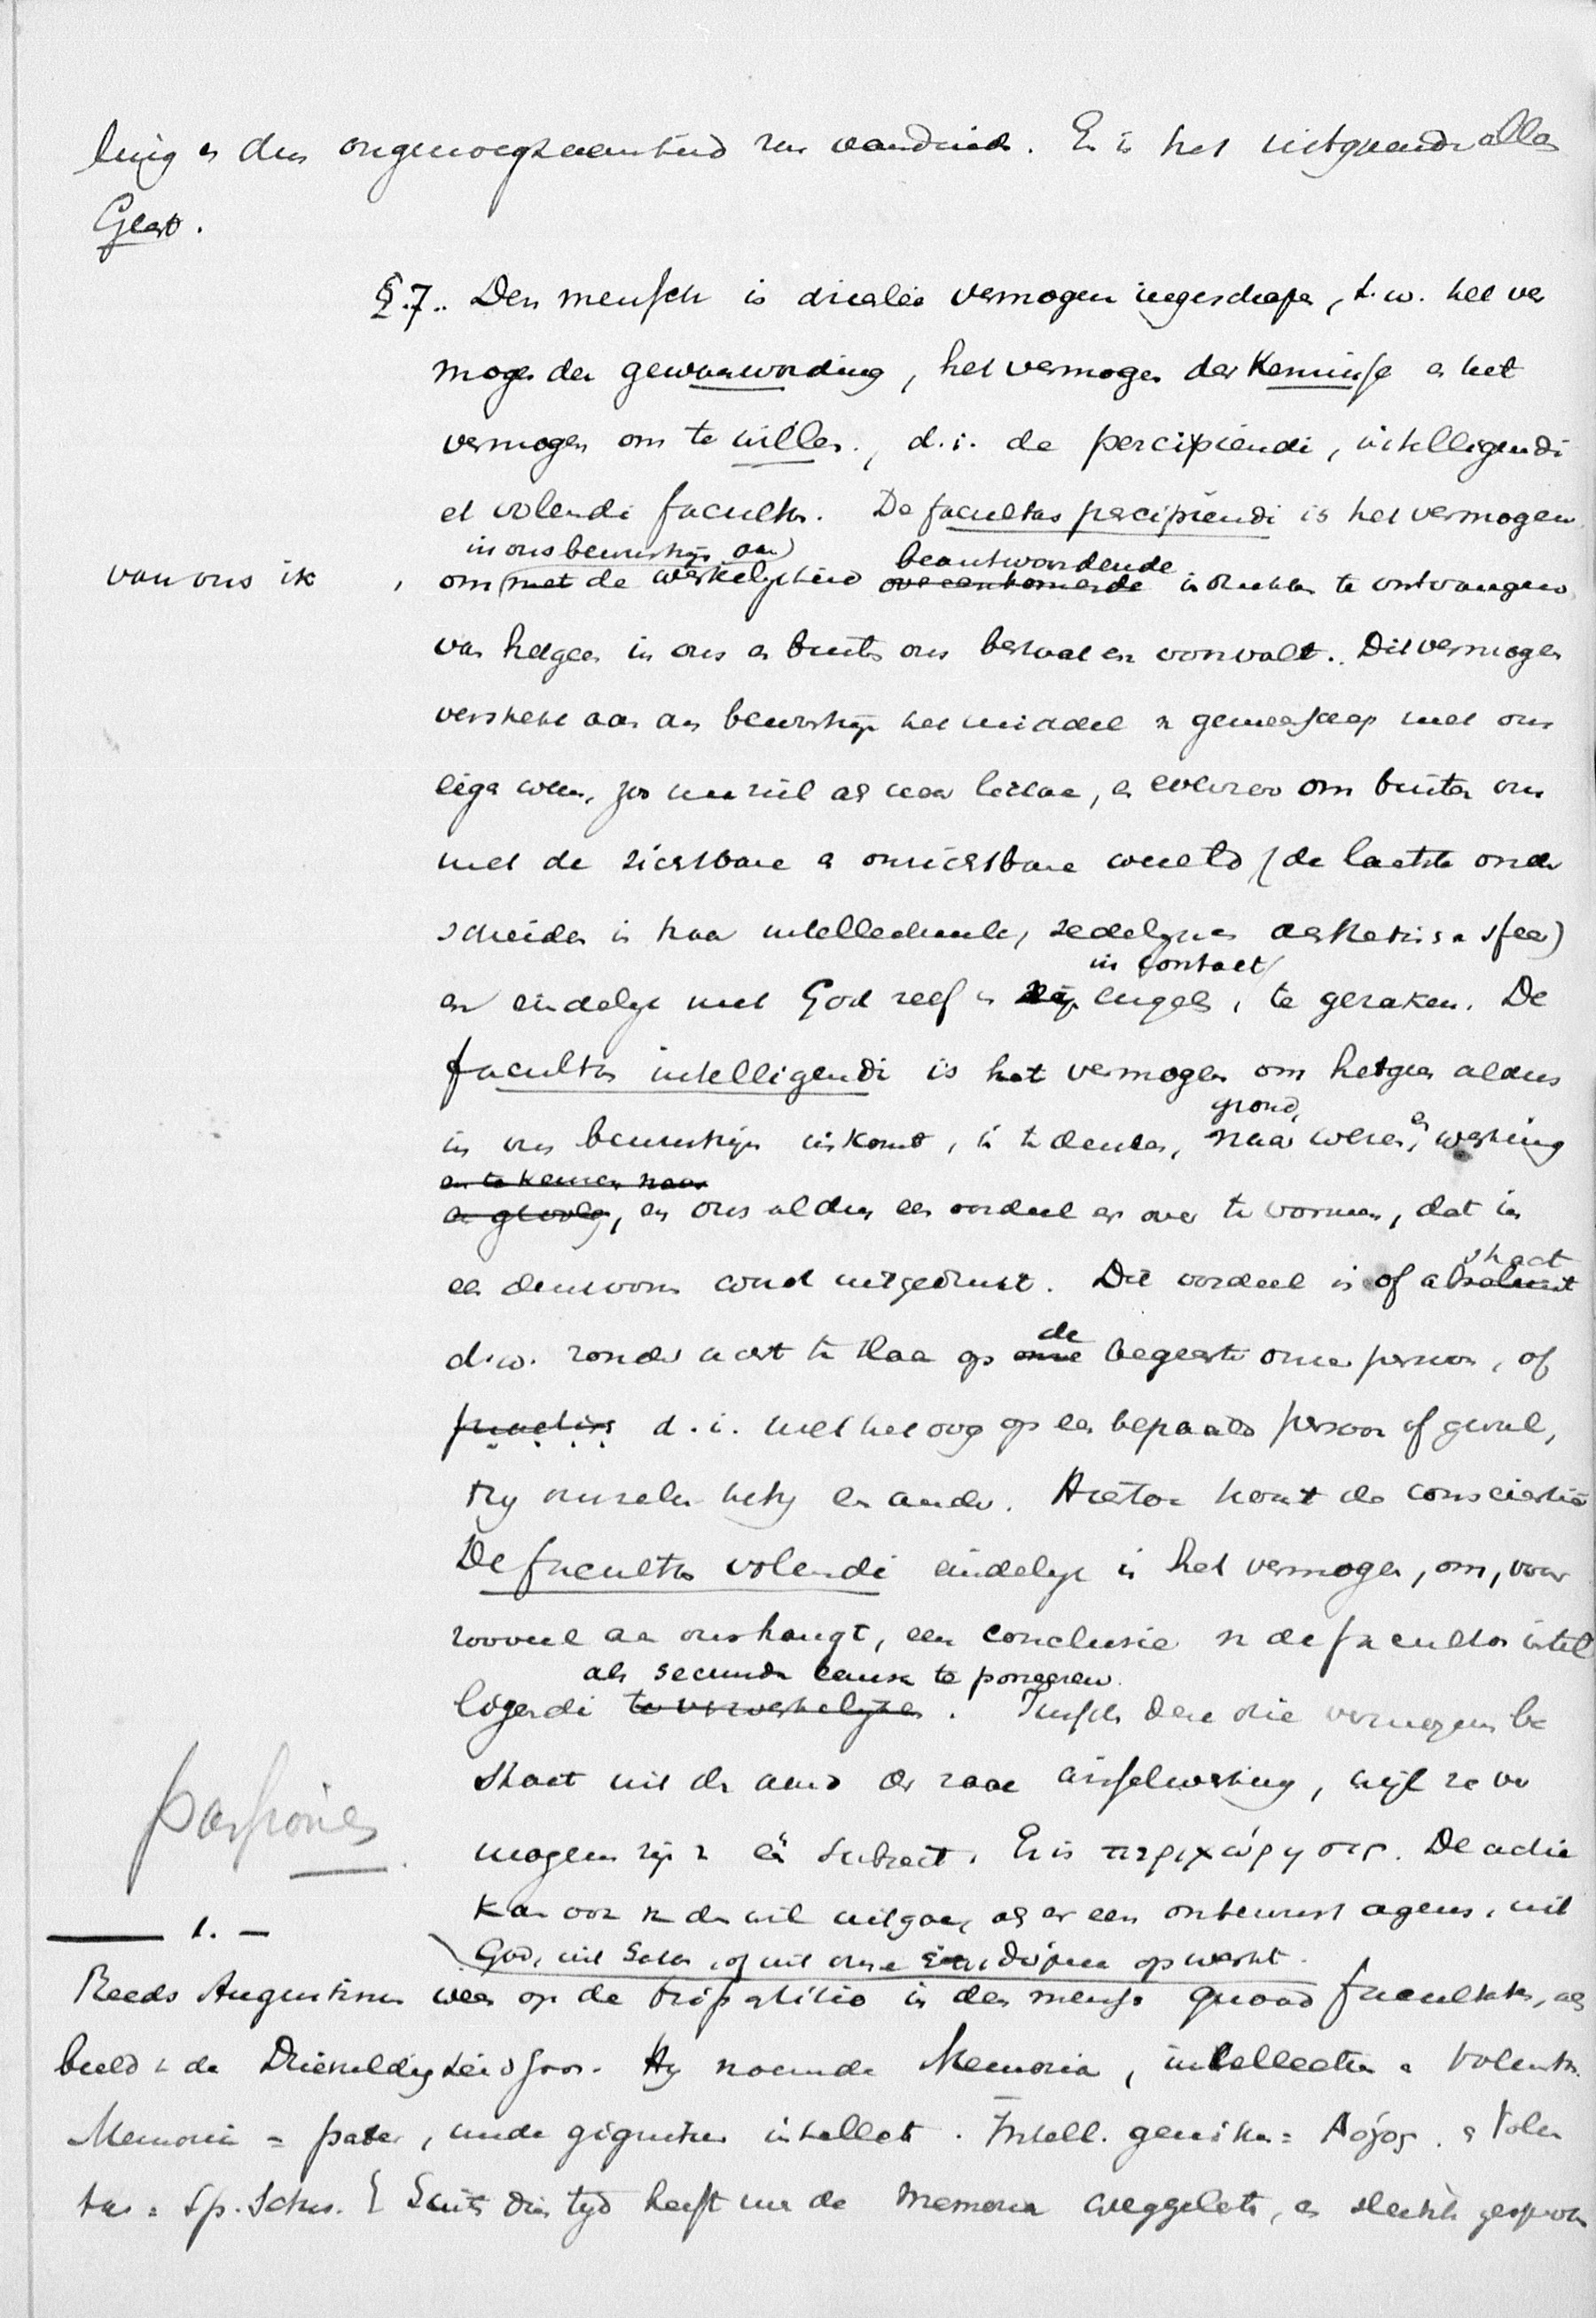 ling en den ongenoegzaamheid van wandeids. En is het uitgaande alles
Geest.
§.7. Den mensch is drieërlei vermogen ingeschapen, t.w. het ver
mogen der gewaarwording, het vermogen der Kennisse en het
vermogen om te willen., d.i. de percipiendi, intelligendi
et volendi facultas. De facultas percipiendi is het vermogen
in ons bewustzijn aan beantwoordende
van ons ik , om met de werkelijkheid overeenkomende indrukken te ontvangen
van hetgeen in ons en buiten ons bestaat en voorvalt. Dit vermogen
verstrekt aan ons bewustzijn het middel om gemeenschap met ons
eigen wezen, zoo naar ziel als naar lichaam, en evenzoo om buiten ons
met de zichtbare en onzichtbare wereld (de laatste onder
scheiden in haar intellectueele, zedelijke en aesthetische sfeer)
in contact
en eindelijk met God zelf en zijn engelen, te geraken. De
facultas intelligendi is het vermogen om hetgeen aldus
grond, en
in ons bewustzijn inkomt, in te denken, naar wezen, werking
en te kennen naar
en gevolg, en ons aldus een oordeel er over te vormen, dat in
een denkvorm wordt uitgedrukt. Dit oordeel is of absoluut
d.w. zonder acht te slaan op onze de begeerte onzer persoon, of
practisch d.i. met het oog op een bepaald persoon of geval,
't zij onszelven hetzij een ander. Hiertoe hoort de conscientia
De facultas volendi eindelijk is het vermogen, om, voor
zooveel aan ons hangt, een conclusie van de facultas intel
als secunda causa te poneeren.
ligendi te verwerkelijken. Tusschen deze drie vermogens be
staat uit den aard der zaak wisselwerking, wijl ze ver
passiones
mogens zijn van één subject. Er is περιχώρησις. De actie
kan ook van den wil uitgaan, als er een onbewust agens, uit
1. —
God, uit Satan, of uit onze eigen diepten opwerkt.
Reeds Augustinus wees op de tripartitio in den mensch quoad facultates, als
beeld van de Drievuldigheid Gods. Hij noemde Memoria, intellectus en Voluntas.
Memoria = pater, unde gignitur intellect. Intell. genitus = Λόγος. en Volun
tas = Sp. Sctus. { Sints dien tijd heeft men de Memoria weggelaten, en slechts gesproken